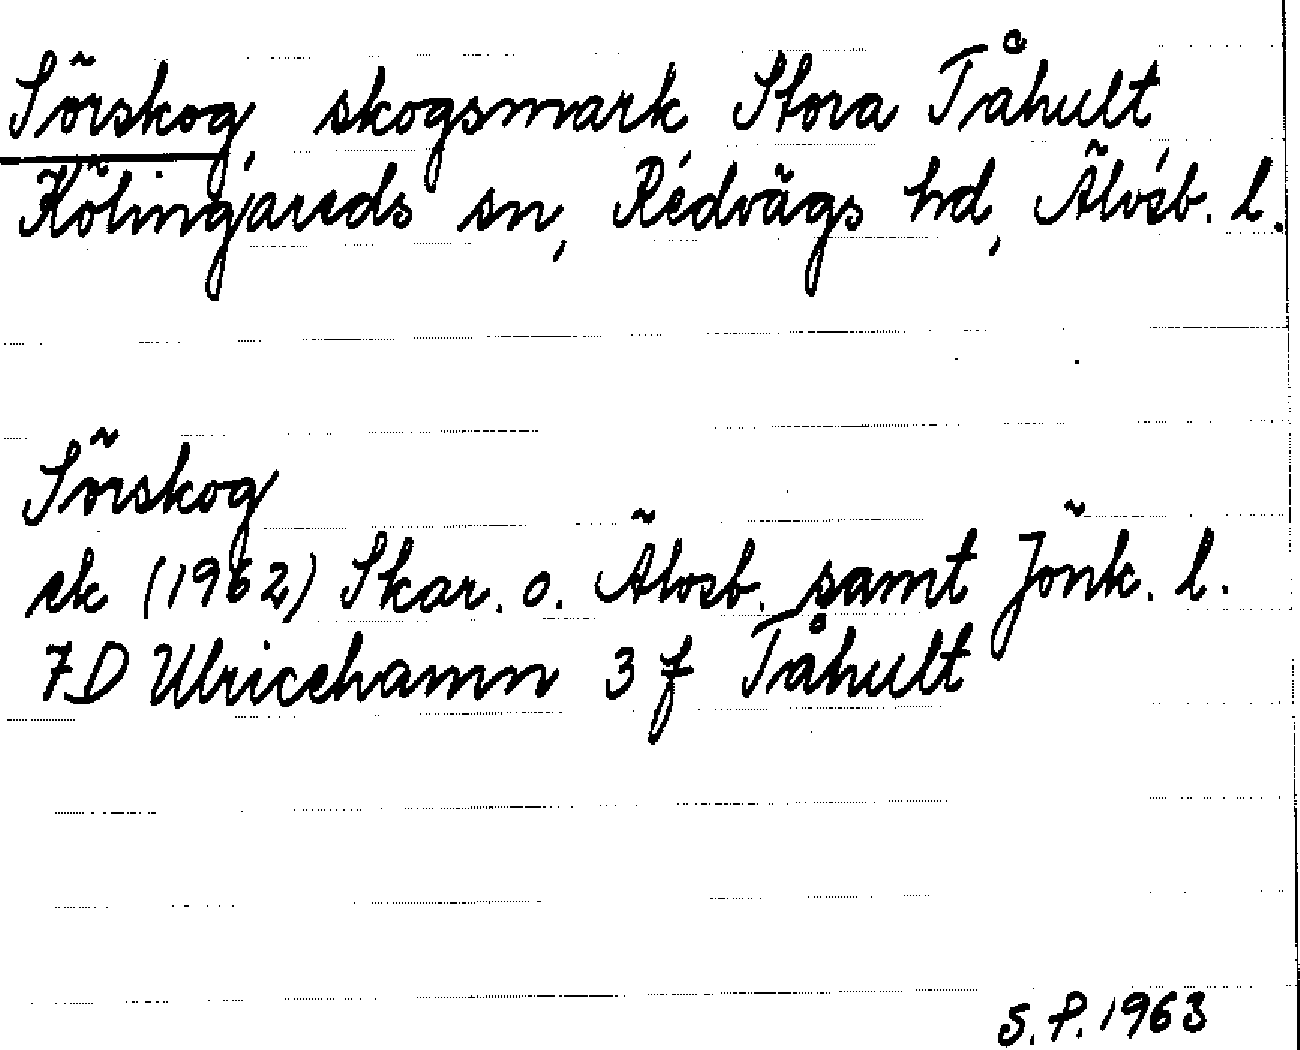 Sörskog, skogsmark, Stora Tåhult,
Kölingareds sn, Redvägs hd, Älvsb. l.
Sörskog
ek (1962) Skar. o. Älvsb. samt Jönk. l.
7D Ulricehamn 3 f Tåhult
S.P. 1963